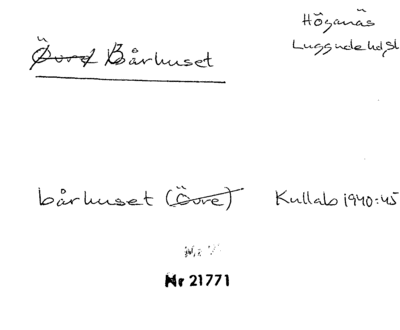 Höganäs
Luggude hd, sk
Övre Bårhuset
bårhuset (Övre) Kullab 1940:45
Nr 21771